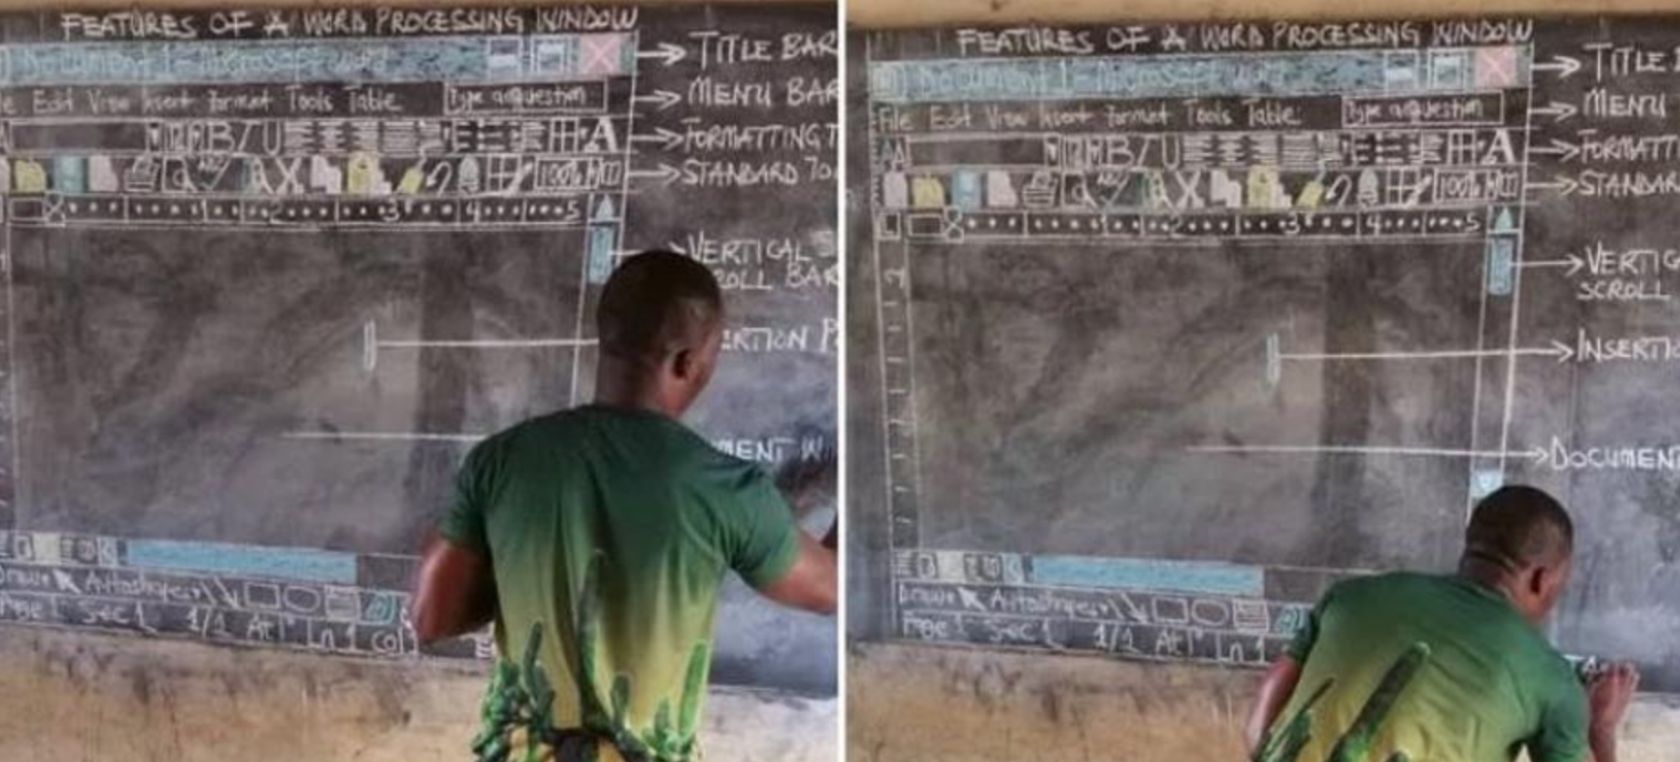 FEATURES OF A WORD PROCESSING WINDOW
Document 1 - Microsoft word
TITLE BAR
Edit View Insert Format Tools Table
Type a question
MENU BAR
B I U
A
FORMATTING T
100%
STANDARD TO
2 3 4 5
VERTICAL S
ROLL BAR
ERTION P
MENT W
Draw
Autoshapes
Page 1 Sec 1 1/1 At 1" Ln 1 Col
FEATURES OF A WORD PROCESSING WINDOW
Document 1 - Microsoft word
TITLE B
File Edit View Insert Format Tools Table
Type a question
MENU
A
B I U
A
FORMATTI
100%
STANDAR
2 3 4 5
VERTIC
SCROLL
INSERTIO
DOCUMEN
Draw
Autoshapes
Page 1 Sec 1 1/1 At 1" Ln 1